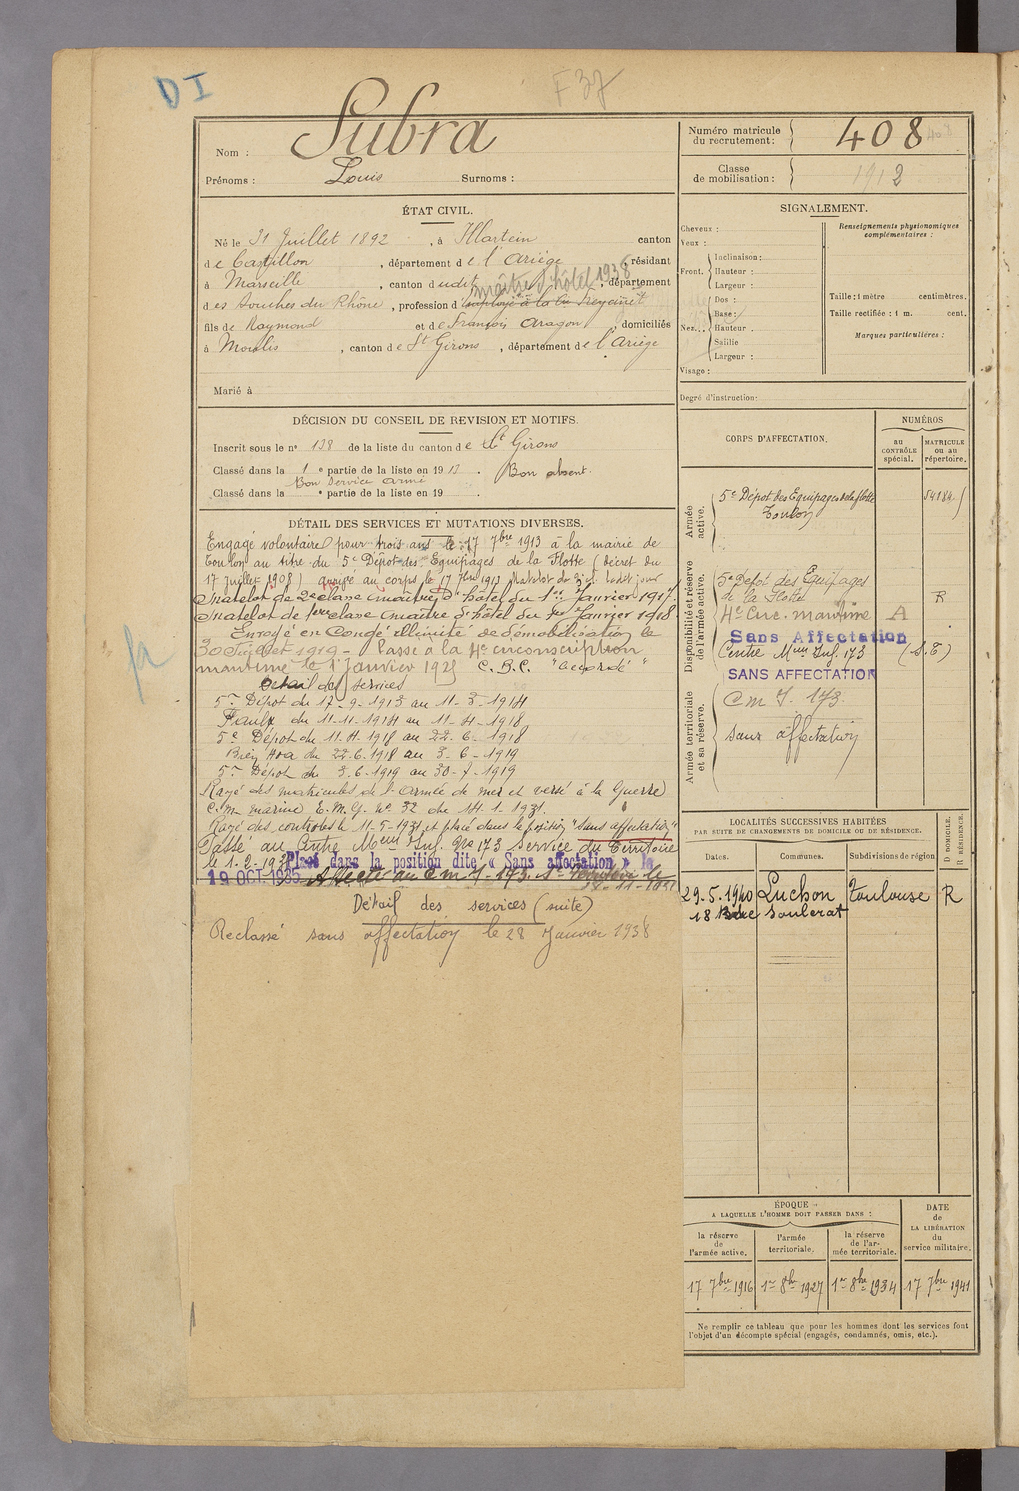 D I
F 37
Nom : Subra
Prénoms : Louis Surnoms :
Numéro matricule du recrutement : 408
408
Classe de mobilisation : 1912
ÉTAT CIVIL.
Né le 31 Juillet 1892, à Illartein canton
de Castillon, département de l'Ariège, résidant
à Marseille, canton dudit, département
maître d'hôtel 1938
des Bouches du Rhône, profession d'employé à la Cie Freycinet
fils de Raymond et de François Aragon, domiciliés
à Moulis, canton de St Girons, département de l'Ariège
Marié à
SIGNALEMENT.
Cheveux :
Yeux :
Front. Inclinaison :
Hauteur :
Largeur :
Nez... Dos :
Base :
Hauteur :
Saillie
Largeur :
Visage :
Renseignements physionomiques complémentaires :
Taille : 1 mètre centimètres.
Taille rectifiée : 1 m. cent.
Marques particulières :
Degré d'instruction :
DÉCISION DU CONSEIL DE REVISION ET MOTIFS.
Inscrit sous le n° 138 de la liste du canton de St Girons
Classé dans la 1e partie de la liste en 1913. Bon absent.
Bon Service armé
Classé dans la e partie de la liste en 19
CORPS D'AFFECTATION.
NUMÉROS
au CONTRÔLE spécial.
MATRICULE ou au répertoire.
Armée active.
5e Dépôt des Equipages de la flotte
Toulon
54184
Disponibilité et réserve de l'armée active.
5e Dépôt des Equipages
de la Flotte
R
4e Circ. maritime A
Sans Affectation
Centre Mum Inf. 173 (S.T)
SANS AFFECTATION
Armée territoriale et sa réserve.
C m I. 173.
sans affectation
DÉTAIL DES SERVICES ET MUTATIONS DIVERSES.
Engagé volontaire pour trois ans le 17 7bre 1913 à la mairie de
Toulon au titre du 5e Dépôt des Equipages de la Flotte (décret du
17 Juillet 1908) arrivé au corps le 17 7bre 1913 Matelot de
Matelot de 2e classe maître d'hôtel du 1er Janvier 1917.
Matelot de 1ère classe maître d'hôtel du 1er Janvier 1918
Envoyé en Congé illimité de démobilisation le
30 Juillet 1919 - Passé à la 4e circonscription
maritime le 1 Janvier 1925 C.B.C. "accordé"
Détail des services
5e Dépôt du 17-9-1913 au 11-3-1914
du 11-11-1914 au 11-4-1918
5e Dépôt du 11.4.1918 au 22-6-1918
du 22.6.1918 au 3-6-1919
5e Dépôt du 3.6.1919 au 30-7-1919
Rayé des matricules de l'Armée de mer et versé à la Guerre
C.M. marine E.M.G. n° 32 du 14.1.1931.
Rayé des contrôles le 11-5-1931 et placé dans la position "sans affectation"
Passé au Centre Mum Inf. No 173 Service du Territoire
le 1-2-193
Placé dans la position dite « Sans affectation » le
19 OCT. 1935
Affecté au C m I - 173.
Détail des services (suite)
Reclassé sans affectation le 28 Janvier 1938
LOCALITÉS SUCCESSIVES HABITÉES
PAR SUITE DE CHANGEMENTS DE DOMICILE OU DE RÉSIDENCE.
Dates.
Communes.
Subdivisions de région
D DOMICILE.
R RÉSIDENCE.
29.5.1940 Luchon Toulouse R
18 Rue Soulerat
ÉPOQUE
A LAQUELLE L'HOMME DOIT PASSER DANS :
la réserve de l'armée active.
l'armée territoriale.
la réserve de l'armée territoriale.
DATE de LA LIBÉRATION du service militaire.
17 7bre 1916
1er 8bre 1927
1er 8bre 1934
17 7bre 1941
Ne remplir ce tableau que pour les hommes dont les services font
l'objet d'un décompte spécial (engagés, condamnés, omis, etc.).